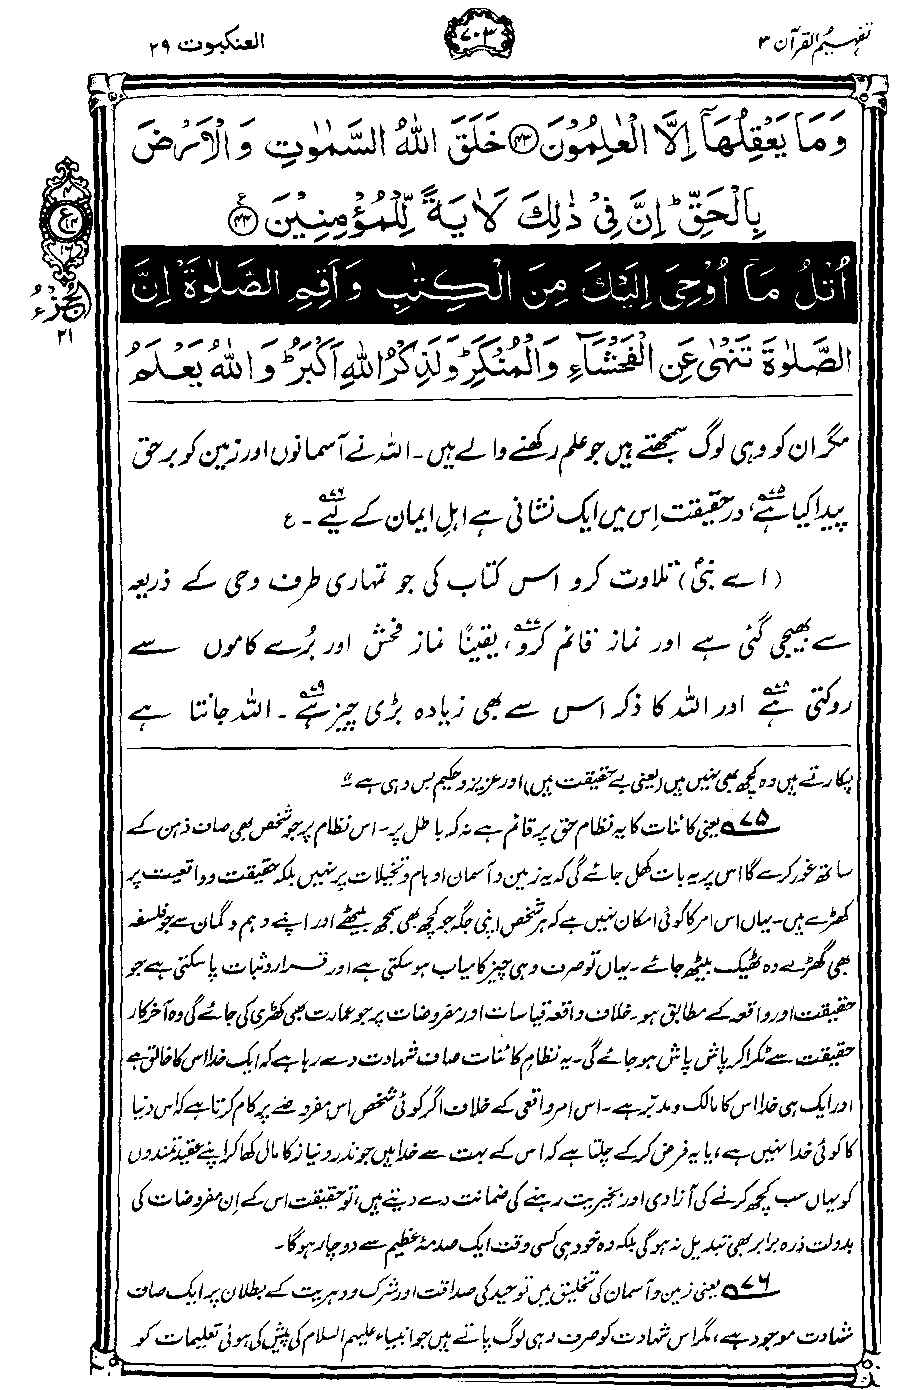 تفہیم القرآن ۳
۷۰۳
العنکبوت ۲۹
وَمَا يَعْقِلُهَآ اِلَّا الْعٰلِمُوْنَ ﴿۴۳﴾ خَلَقَ اللّٰهُ السَّمٰوٰتِ وَالْاَرْضَ
بِالْحَقِّ ؕ اِنَّ فِىْ ذٰلِكَ لَاٰيَةً لِّلْمُؤْمِنِيْنَ ﴿۴۴﴾ ع
اُتْلُ مَآ اُوْحِىَ اِلَيْكَ مِنَ الْكِتٰبِ وَاَقِمِ الصَّلٰوةَ اِنَّ
الصَّلٰوةَ تَنْهٰى عَنِ الْفَحْشَآءِ وَالْمُنْكَرِ ؕ وَلَذِكْرُ اللّٰهِ اَكْبَرُ ؕ وَاللّٰهُ يَعْلَمُ
ع
۱۶
الجزء
۲۱
مگر ان کو وہی لوگ سمجھتے ہیں جو علم رکھنے والے ہیں۔ اللہ نے آسمانوں اور زمین کو برحق
پیدا کیا ہے،۷۵ درحقیقت اِس میں ایک نشانی ہے اہلِ ایمان کے لیے۷۶۔ ع
(اے نبیؐ) تلاوت کرو اس کتاب کی جو تمہاری طرف وحی کے ذریعہ
سے بھیجی گئی ہے اور نماز قائم کرو،۷۷ یقیناً نماز فحش اور بُرے کاموں سے
روکتی ہے۷۸ اور اللہ کا ذکر اس سے بھی زیادہ بڑی چیز ہے۷۹۔ اللہ جانتا ہے
پکارتے ہیں وہ کچھ بھی نہیں ہیں (یعنی بے حقیقت ہیں) اور عزیز و حکیم بس وہی ہے"
۷۵ یعنی کائنات کا یہ نظام حق پر قائم ہے نہ کہ باطل پر۔ اس نظام پر جو شخص بھی صاف ذہن کے
ساتھ غور کرے گا اس پر یہ بات کھل جائے گی کہ یہ زمین و آسمان اوہام و تخیلات پر نہیں بلکہ حقیقت و واقعیت پر
کھڑے ہیں۔ یہاں اس امر کا کوئی امکان نہیں ہے کہ ہر شخص اپنی جگہ جو کچھ بھی سمجھ بیٹھے اور اپنے وہم و گمان سے جو فلسفہ
بھی گھڑ لے وہ ٹھیک بیٹھ جائے۔ یہاں تو صرف وہی چیز کامیاب ہو سکتی ہے اور قرار و ثبات پا سکتی ہے جو
حقیقت اور واقعہ کے مطابق ہو۔ خلافِ واقعہ قیاسات اور مفروضات پر جو عمارت بھی کھڑی کی جائے گی وہ آخرکار
حقیقت سے ٹکرا کر پاش پاش ہو جائے گی۔ یہ نظامِ کائنات صاف شہادت دے رہا ہے کہ ایک خدا اس کا خالق ہے
اور ایک ہی خدا اس کا مالک و مدبّر ہے۔ اس امرِ واقعی کے خلاف اگر کوئی شخص اس مفروضے پر کام کرتا ہے کہ اس دنیا
کا کوئی خدا نہیں ہے، یا یہ فرض کر کے چلتا ہے کہ اس کے بہت سے خدا ہیں جو نذر و نیاز کا مال کھا کر اپنے عقیدتمندوں
کو یہاں سب کچھ کرنے کی آزادی اور بخیریت رہنے کی ضمانت دے دیتے ہیں، تو حقیقت اس کے اِن مفروضات کی
بدولت ذرہ برابر بھی تبدیل نہ ہوگی بلکہ وہ خود ہی کسی وقت ایک صدمۂ عظیم سے دوچار ہوگا۔
۷۶ یعنی زمین و آسمان کی تخلیق میں توحید کی صداقت اور شرک و دہریت کے بطلان پر ایک صاف
شہادت موجود ہے، مگر اس شہادت کو صرف وہی لوگ پاتے ہیں جو انبیاء علیہم السلام کی پیش کی ہوئی تعلیمات کو